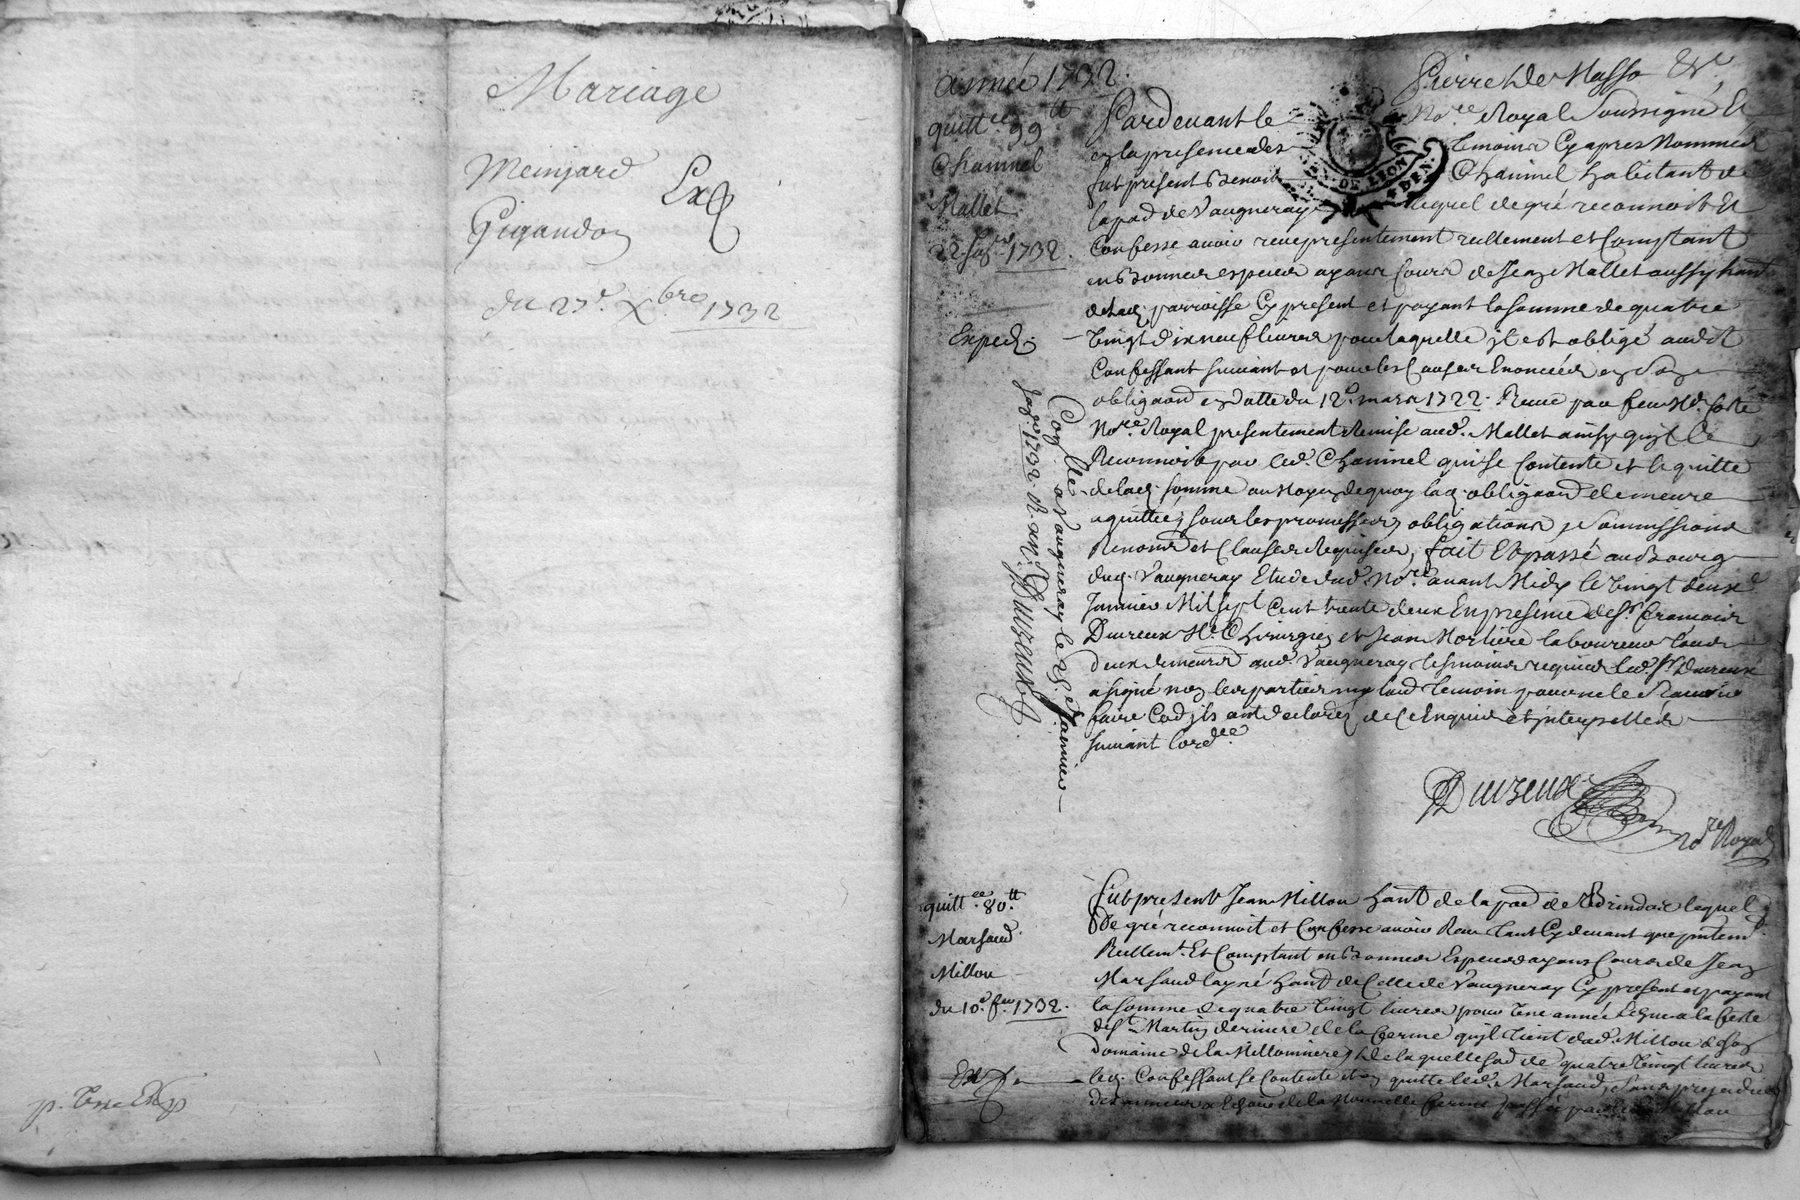 Mariage
Meinjard
Gigandon
Exp
du 27e Xbre 1732
p. Une Exp
année 1732.
quittce 99tt
Chaninel
Mallet
22 Janv. 1732.
Exped.
Pierre de Masso Exr
Pardevant le Nore Royal Soussigné Et
en la presence des Temoins Cy apres Nommés
fut présent Benoit Chaninel habitant de
la pad de Vaugneray lequel de gré reconnoit Et
Confesse avoir receu presentement reellement et Comptant
en Bonnes especes ayans Cours de Jean Mallet aussy hant
de lad. parroisse Cy present et payant la somme de quatre
Vingt dix neuf livres pour laquelle il est obligé audit
Confessant suivant et pour les Causes Enoncées en Son
obligaon en datte du 12e mars 1722. Receue par feu Me Coste
Nore Royal presentement Remise aud. Mallet ainsy qu'il le
Reconnoit par led. Chaninel qui se Contente et le quitte
de lad. somme au Moyen de quoy lad. obligaon demeure
aquittée, sous les promesses, obligations, Soumissions
Renons et Clauses Requises, fait Et passé au Bourg
dud. Vaugneray Etude dud. Nore avant Midy le Vingt deux
Janvier Mil sept Cent trente deux En presence de Sr
Dureux Me Chirurgien et Jean Morliere laboureur tous
deux demeurs aud. Vaugneray temoins requis led. Sr Dureux
a signé non les parties ny laud. Temoin pour ne le Scavoir
faire Co ils ont declaré de Ce Enquis et interpellés
suivant lordce
Dureux
nore Royal
Conllé a Vaugneray le 25. Janvier
1732. R. Dureux
quittce 80tt
Marsaud
Millon
du 10e f. 1732.
Exp
Fut present Jean Millon hant de la pad de Brindas lequel
De gré reconnoit et Confesse avoir Receu tant Cy devant que pntemt
Reellemt Et Comptant en Bonnes Especes ayans Cours de Jean
Marsaud layné hant de Celle de Vaugneray Cy present et payant
la somme de quatre Vingt livres pour Une année Echue a la feste
de St Martin derniere de la ferme qu'il tient dud. Millon de son
Domaine de la Milloniere, de laquelle so de quatre Vingt livres
led. Confessant se Contente et en quitte led. Marsaud, Sans prejudice
de la Nouvelle ferme passée